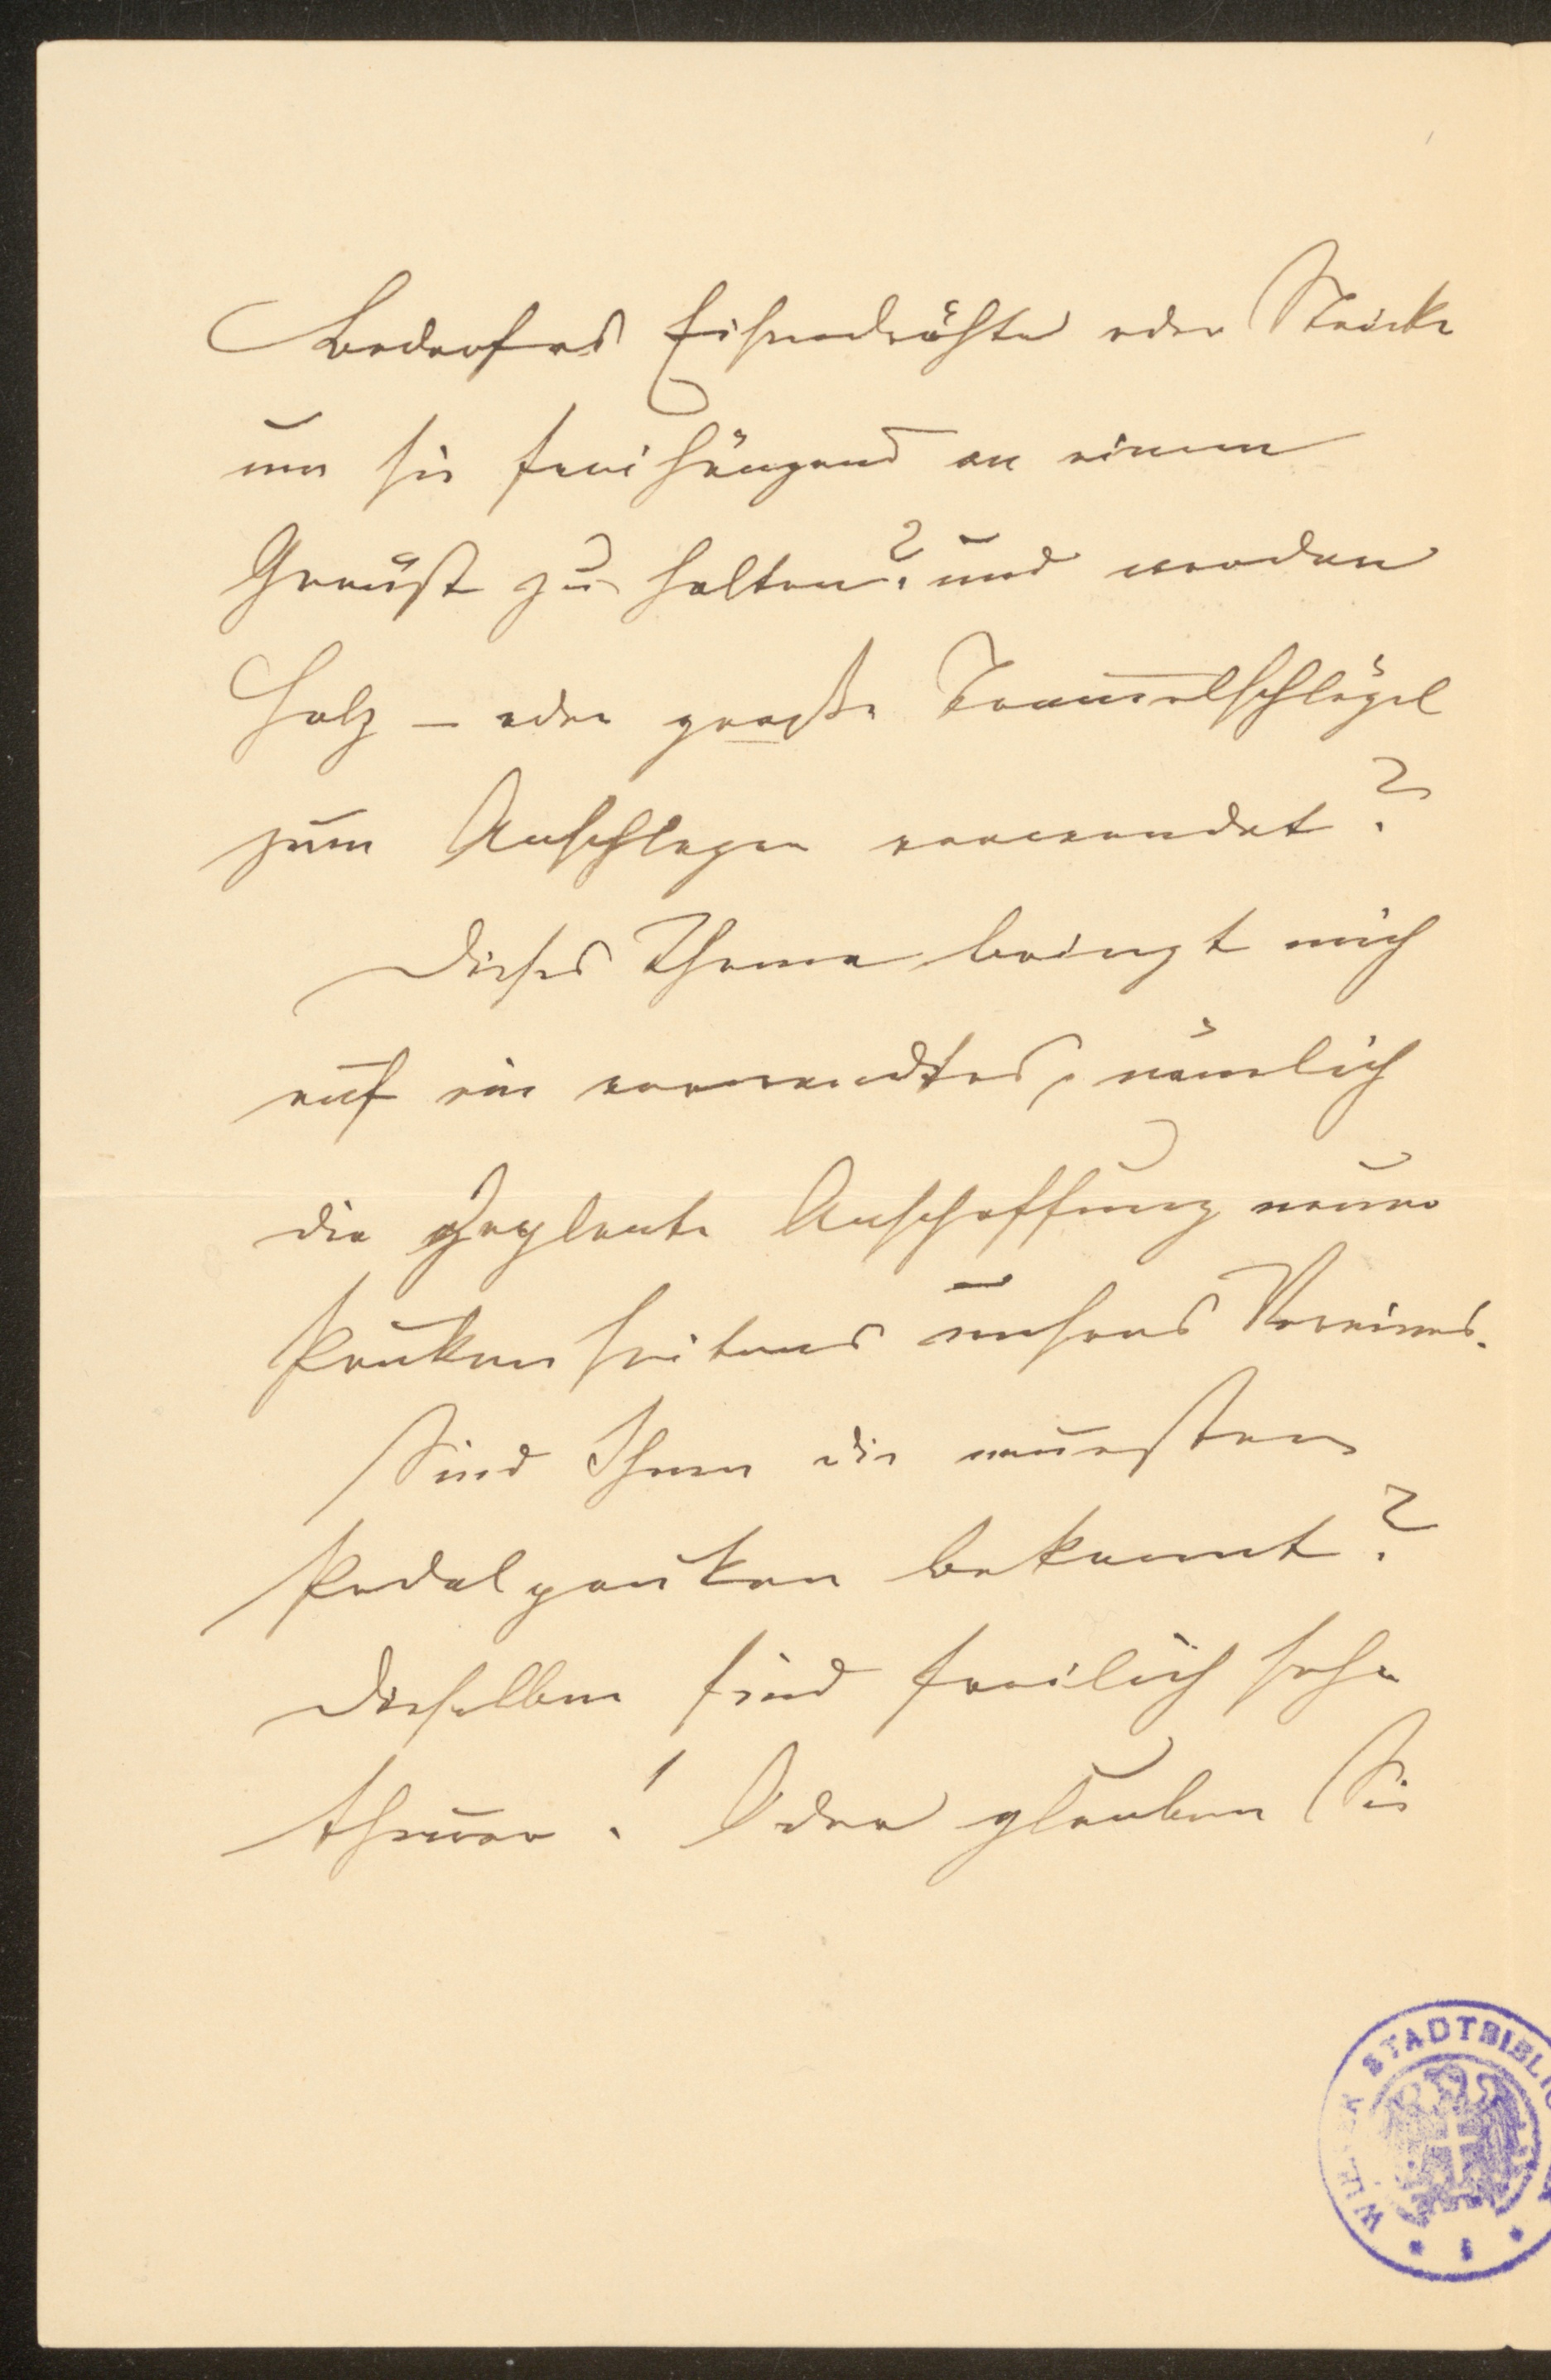 Bedarf es Eisendrähte oder Stricke
um sie freihängend an einem
Gerüst zu halten? und werden
Holz – oder große Trommelschlägel
zum Anschlagen verwendet?
Dieses Thema bringt mich
auf ein verwandtes, nämlich
die geplante Anschaffung neuer
Pauken seitens unseres Vereines.
Sind Ihnen die neuesten
Pedalpauken bekannt?
Dieselben sind freilich sehr
theuer! Oder glauben Sie
WIENER STADTBIBLIO